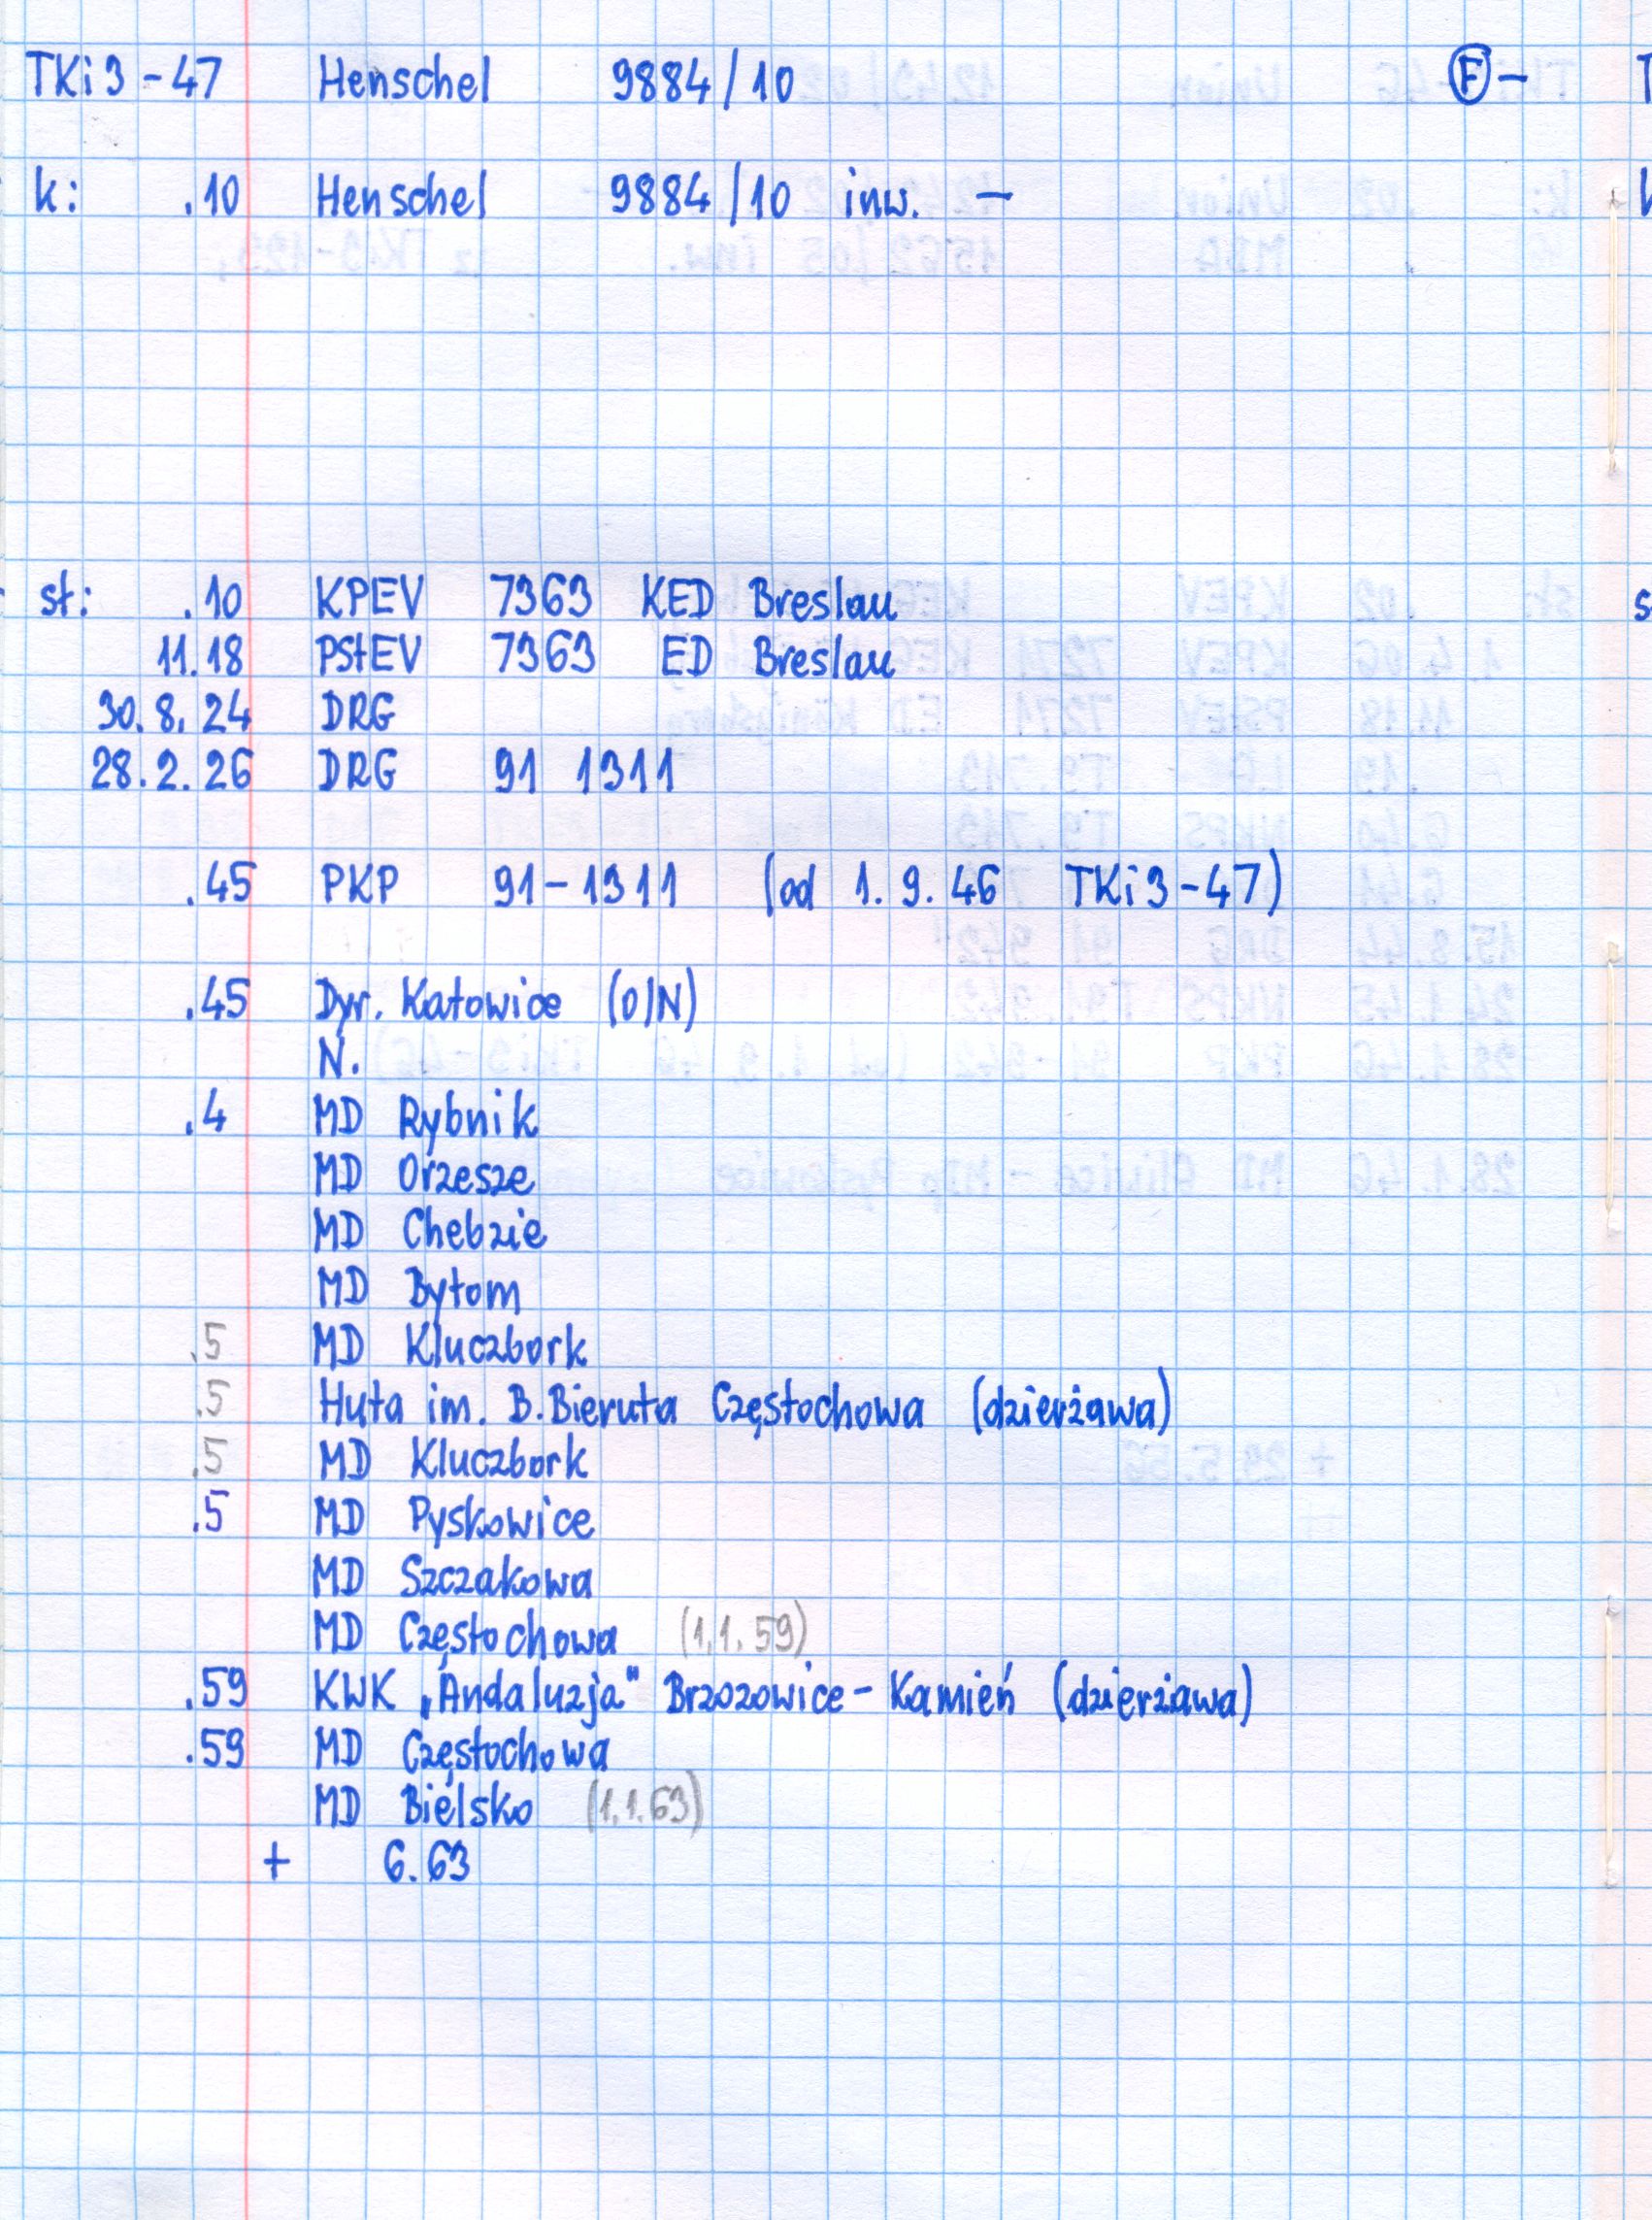 TKi3-47 Henschel 9884/10 F -
k: .10 Henschel 9884/10 inw. -
st: .10 KPEV 7363 KED Breslau
11.18 PStEV 7363 ED Breslau
30.8.24 DRG
28.2.26 DRG 91 1311
.45 PKP 91-1311 (od 1.9.46 TKi3-47)
.45 Dyr. Katowice (O/N)
N.
.4 MD Rybnik
MD Orzesze
MD Chebzie
MD Bytom
.5 MD Kluczbork
.5 Huta im. B.Bieruta Częstochowa (dzierżawa)
.5 MD Kluczbork
.5 MD Pyskowice
MD Szczakowa
MD Częstochowa (1.1.59)
.59 KWK „Andaluzja" Brzozowice-Kamień (dzierżawa)
.59 MD Częstochowa
MD Bielsko (1.1.63)
+ 6.63